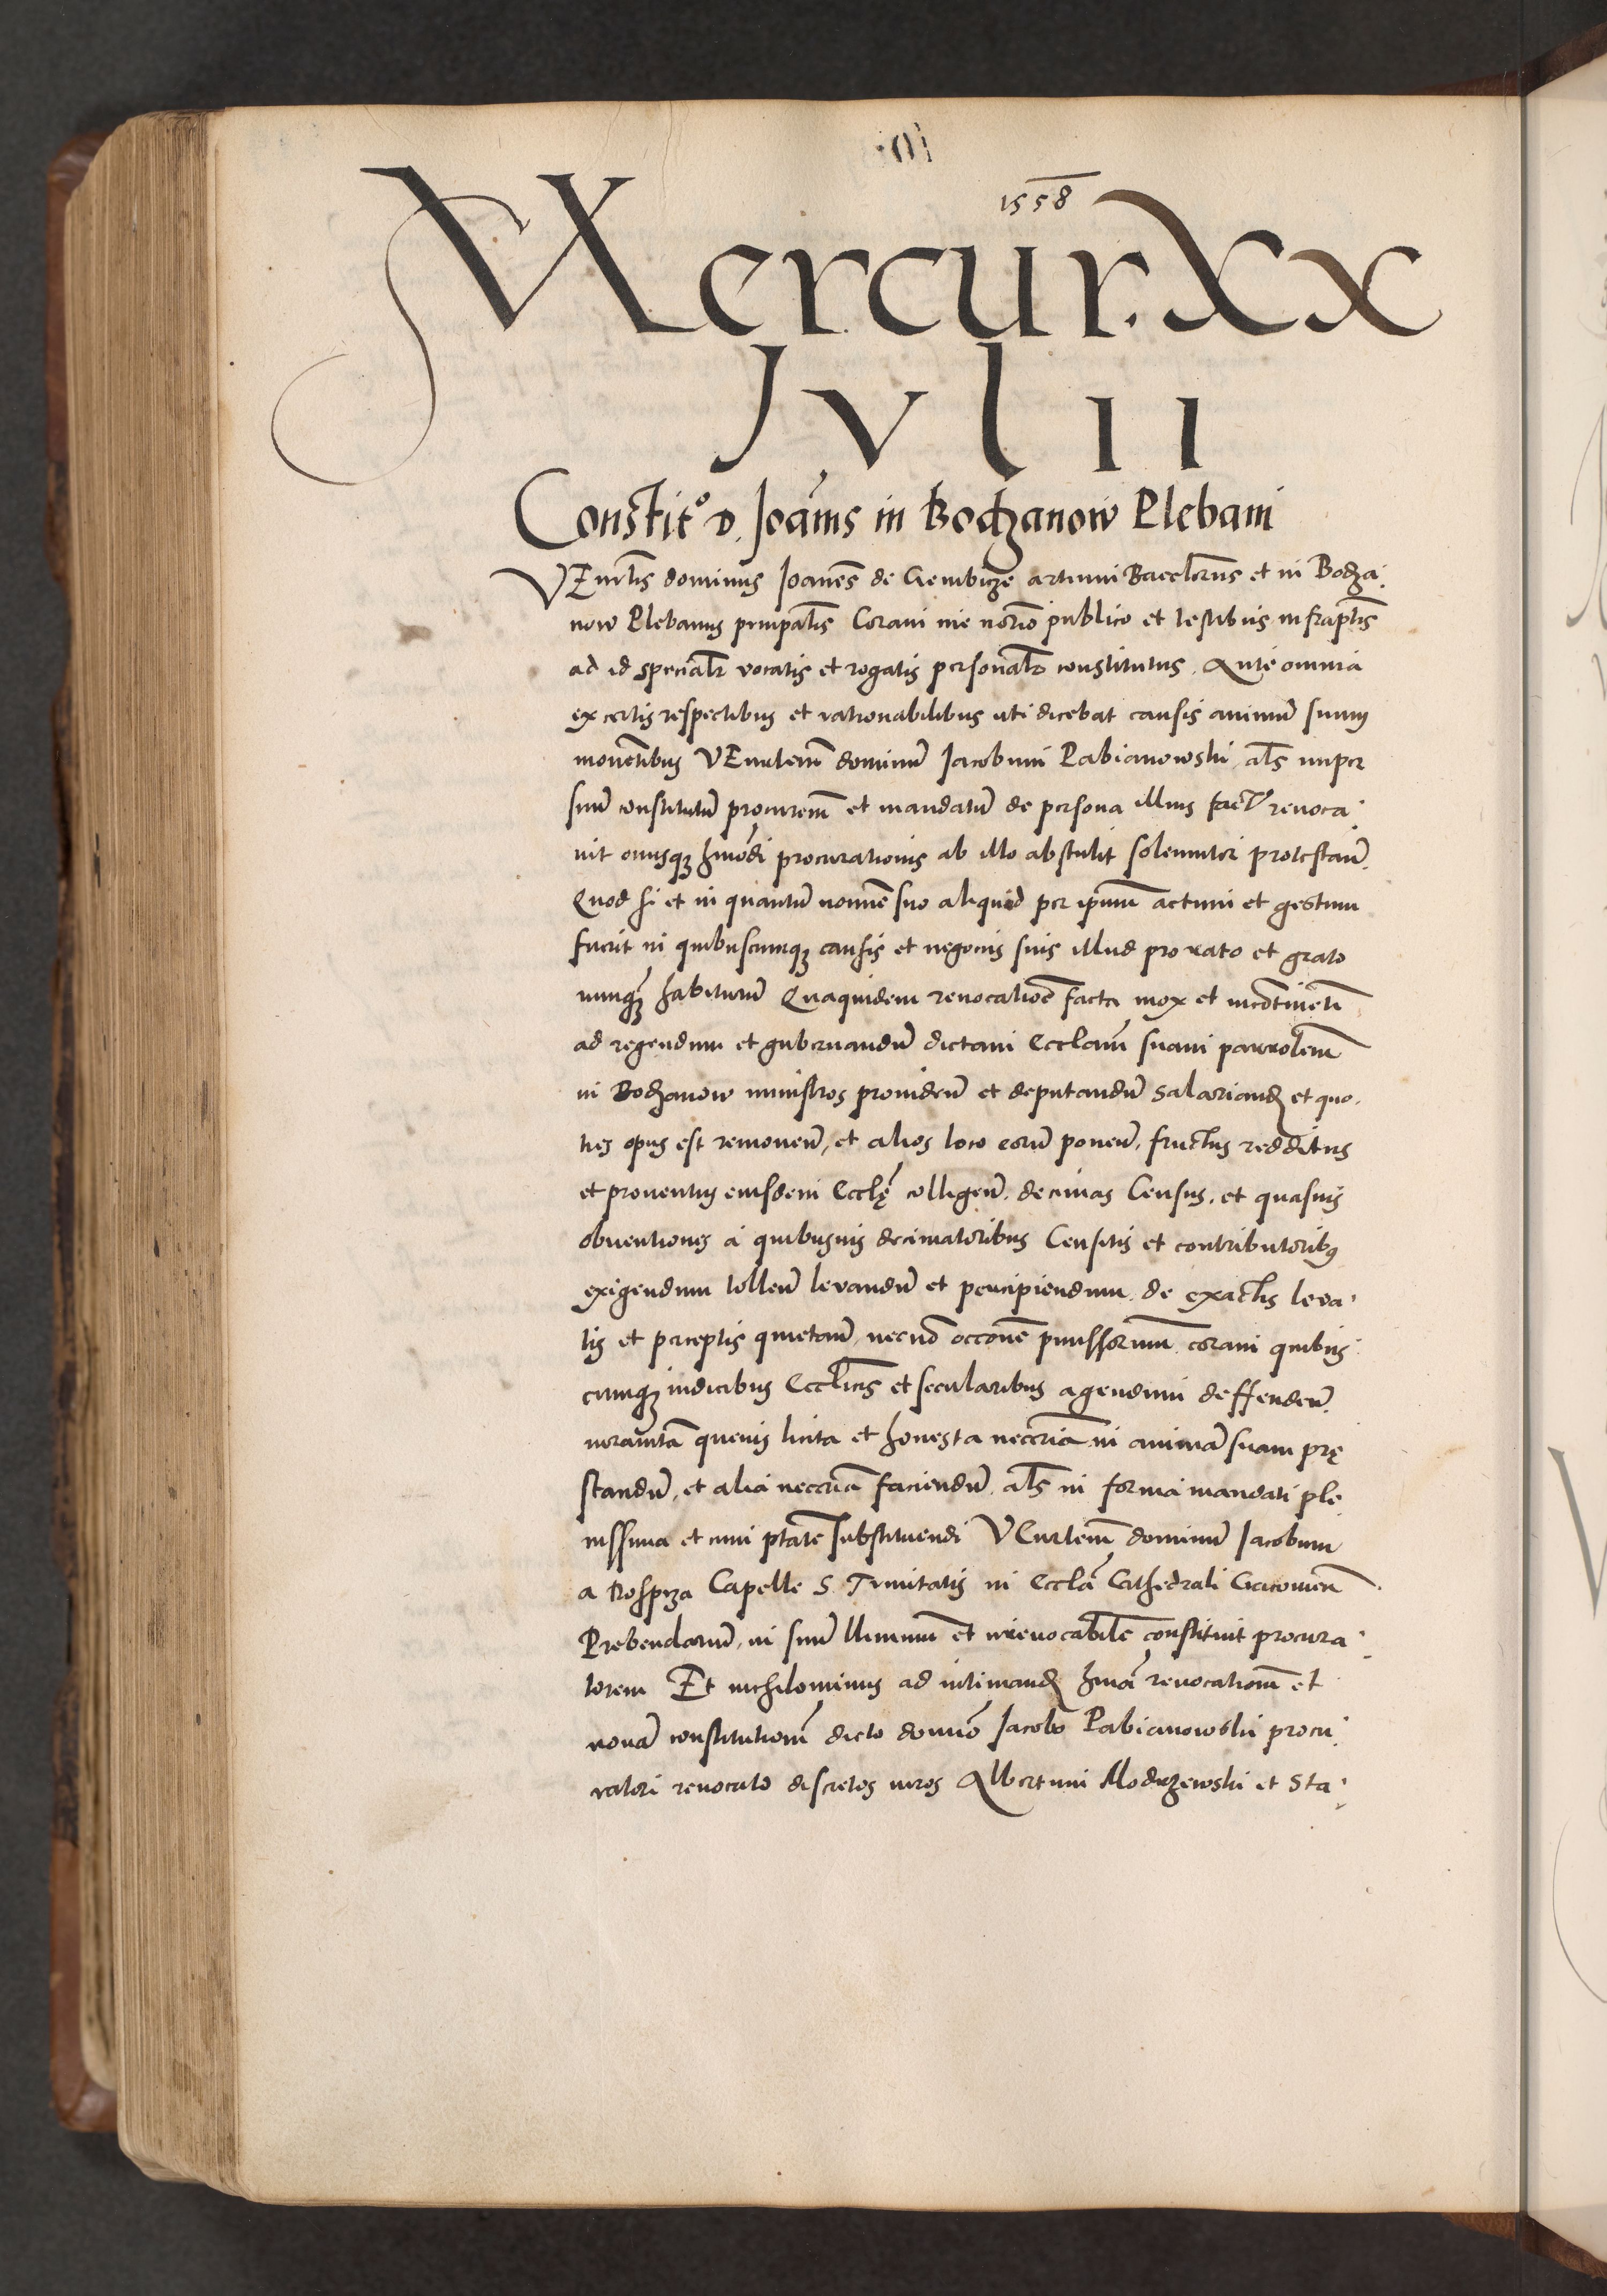 1558
Mercur. XX
JVlII
Constit° D. Joanis in Bodzanow Plebani
VEnrlis dominus Joanes de Gembicze artium Bacclrus et in Bodza
now Plebanus principalis Coram me notrio publico et testibus infraptis
ad id specialr vocatis et rogatis personalr constitutus. Ante omnia
ex certis respectibus et rationabilibus uti dicebat causis animu suum
moventibus VEnrlem dominu Jacobum Pabianowski als nuper
suu constitutu procurem et mandatu de persona illius fact revoca
vit onusq hmodi procurationis ab illo abstulit solenniter protestan
Quod si et in quantu nomine suo aliquid per ipsum actum et gestum
fuerit in quibuscumq causis et negociis suis illud pro rato et grato
nunq habiturum Quaquidem revocatioe facta mox et incotineti
ad regendum et gubernandu dictam Ecclam suam parrolem
in Bodzanow ministros providen et deputandu salariand et quo
ties opus est removen, et alios loco eoru ponen, fructus redditus
et proventus eiusdem Ecclę colligen. decimas Census, et quasvis
obventiones a quibusvis decimatoribus Censitis et contributorib9
exigendum tollen levandu et percipiendum. de exactis leva
tis et perceptis quietan, necno occone pmissorum coram quibus
cumq iudicibus Ecclicis et secularibus agendum deffenden
iuramta quevis licita et honesta necria in anima suam prę
standu, et alia necria faciendu. als in forma mandati ple
nissima et cum ptate substituendi VEnrlem dominu Jacobum
a Rospza Capelle S. Trinitatis in Eccla Cathedrali Cracovien
Prebendariu, in suu llimum et irrevocabile constituit procura
torem Et nichilominus ad intimand hmoi revocationem et
nova constitutionem dicto domio Jacobo Pabianowski procu
ratori revocato discretos viros Albertum Modrzewski et Sta